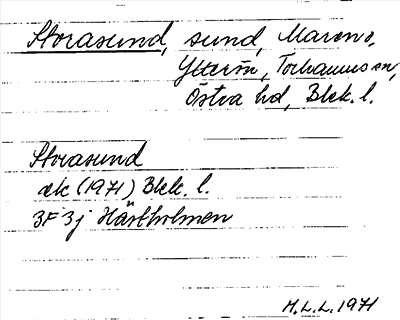 Storasund, sund, Marens,
Ytterön, Torhamns sn,
Östra hd, Blek. l.
Storasund
ek (1971) Blek. l.
3F 3j Hästholmen
M.L.L. 1971